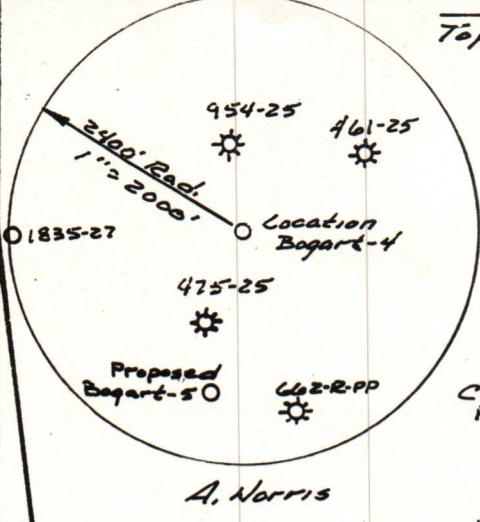 954-25
461-25
2400' Rad.
1"= 2000'
Location
Bogart-4
1835-27
475-25
Proposed
Bogart-5
662-R-PP
A. Norris